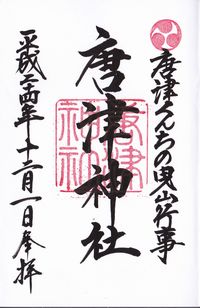 唐津くんちの曳山行事
唐津神社
唐津神社
平成二十四年十二月一日奉拝